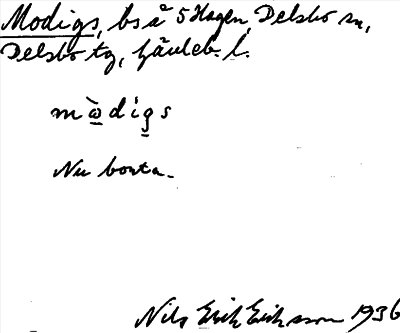 Modigs, bs å 5 Hagen, Delsbo sn,
Delsbo tg, Gävleb. l.
mò̲digs
Nu borta.
Nils Erik Eriksson 1936